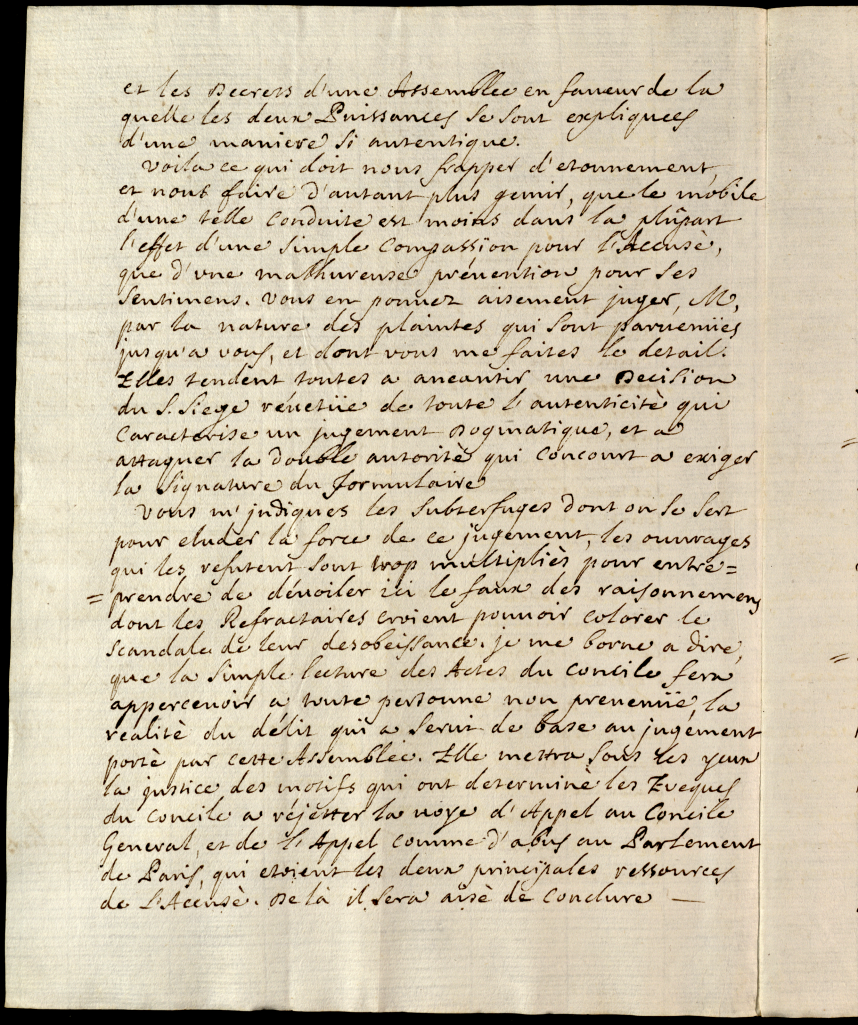 et les Decrets d'une Assemblée en faveur de la
quelle les deux Puissances se sont expliquées
d'une maniere si autentique.
Voila ce qui doit nous frapper d'etonnement,
et nous faire d'autant plus gemir, que le mobile
d'une telle conduite est moins dans la plûpart
l'effet d'une simple compassion pour l'Accusè,
que d'vne malhureuse prévention pour ses
sentimens. Vous en pouvez aisement juger, M,
par la nature des plaintes qui sont parvenües
jusqu'a vous, et dont vous me faites le detail.
Elles tendent toutes a aneantir une Decision
du S. Siege révetüe de toute l'autenticitè qui
caracterise un jugement Dogmatique, et a
attaquer la double autoritè qui concourt a exiger
la signature du formulaire
Vous m'jndiquez les subterfuges dont on se sert
pour eluder la force de ce jugement, les ouvrages
qui les refutent sont trop multipliès pour entre=
=prendre de dévoiler ici le faux des raisonnemens
dont les Refractaires croient pouvoir colorer le
scandale de leur desobeissance. je me borne a dire,
que la simple lecture des Actes du Concile fera
appercevoir a toute personne non prevenüe, la
réalitè du délit qui a servit de base au jugement
portè par cette Assemblée. Elle mettra sous les yeux
la justice des motifs qui ont determinè les Eveques
du Concile a réjetter la voye d'Appel au Concile
General, et de l'Appel comme d'abus au Parlement
de Paris, qui etoient les deux principales ressources
de l'Accusè. De là il sera aisè de conclure —